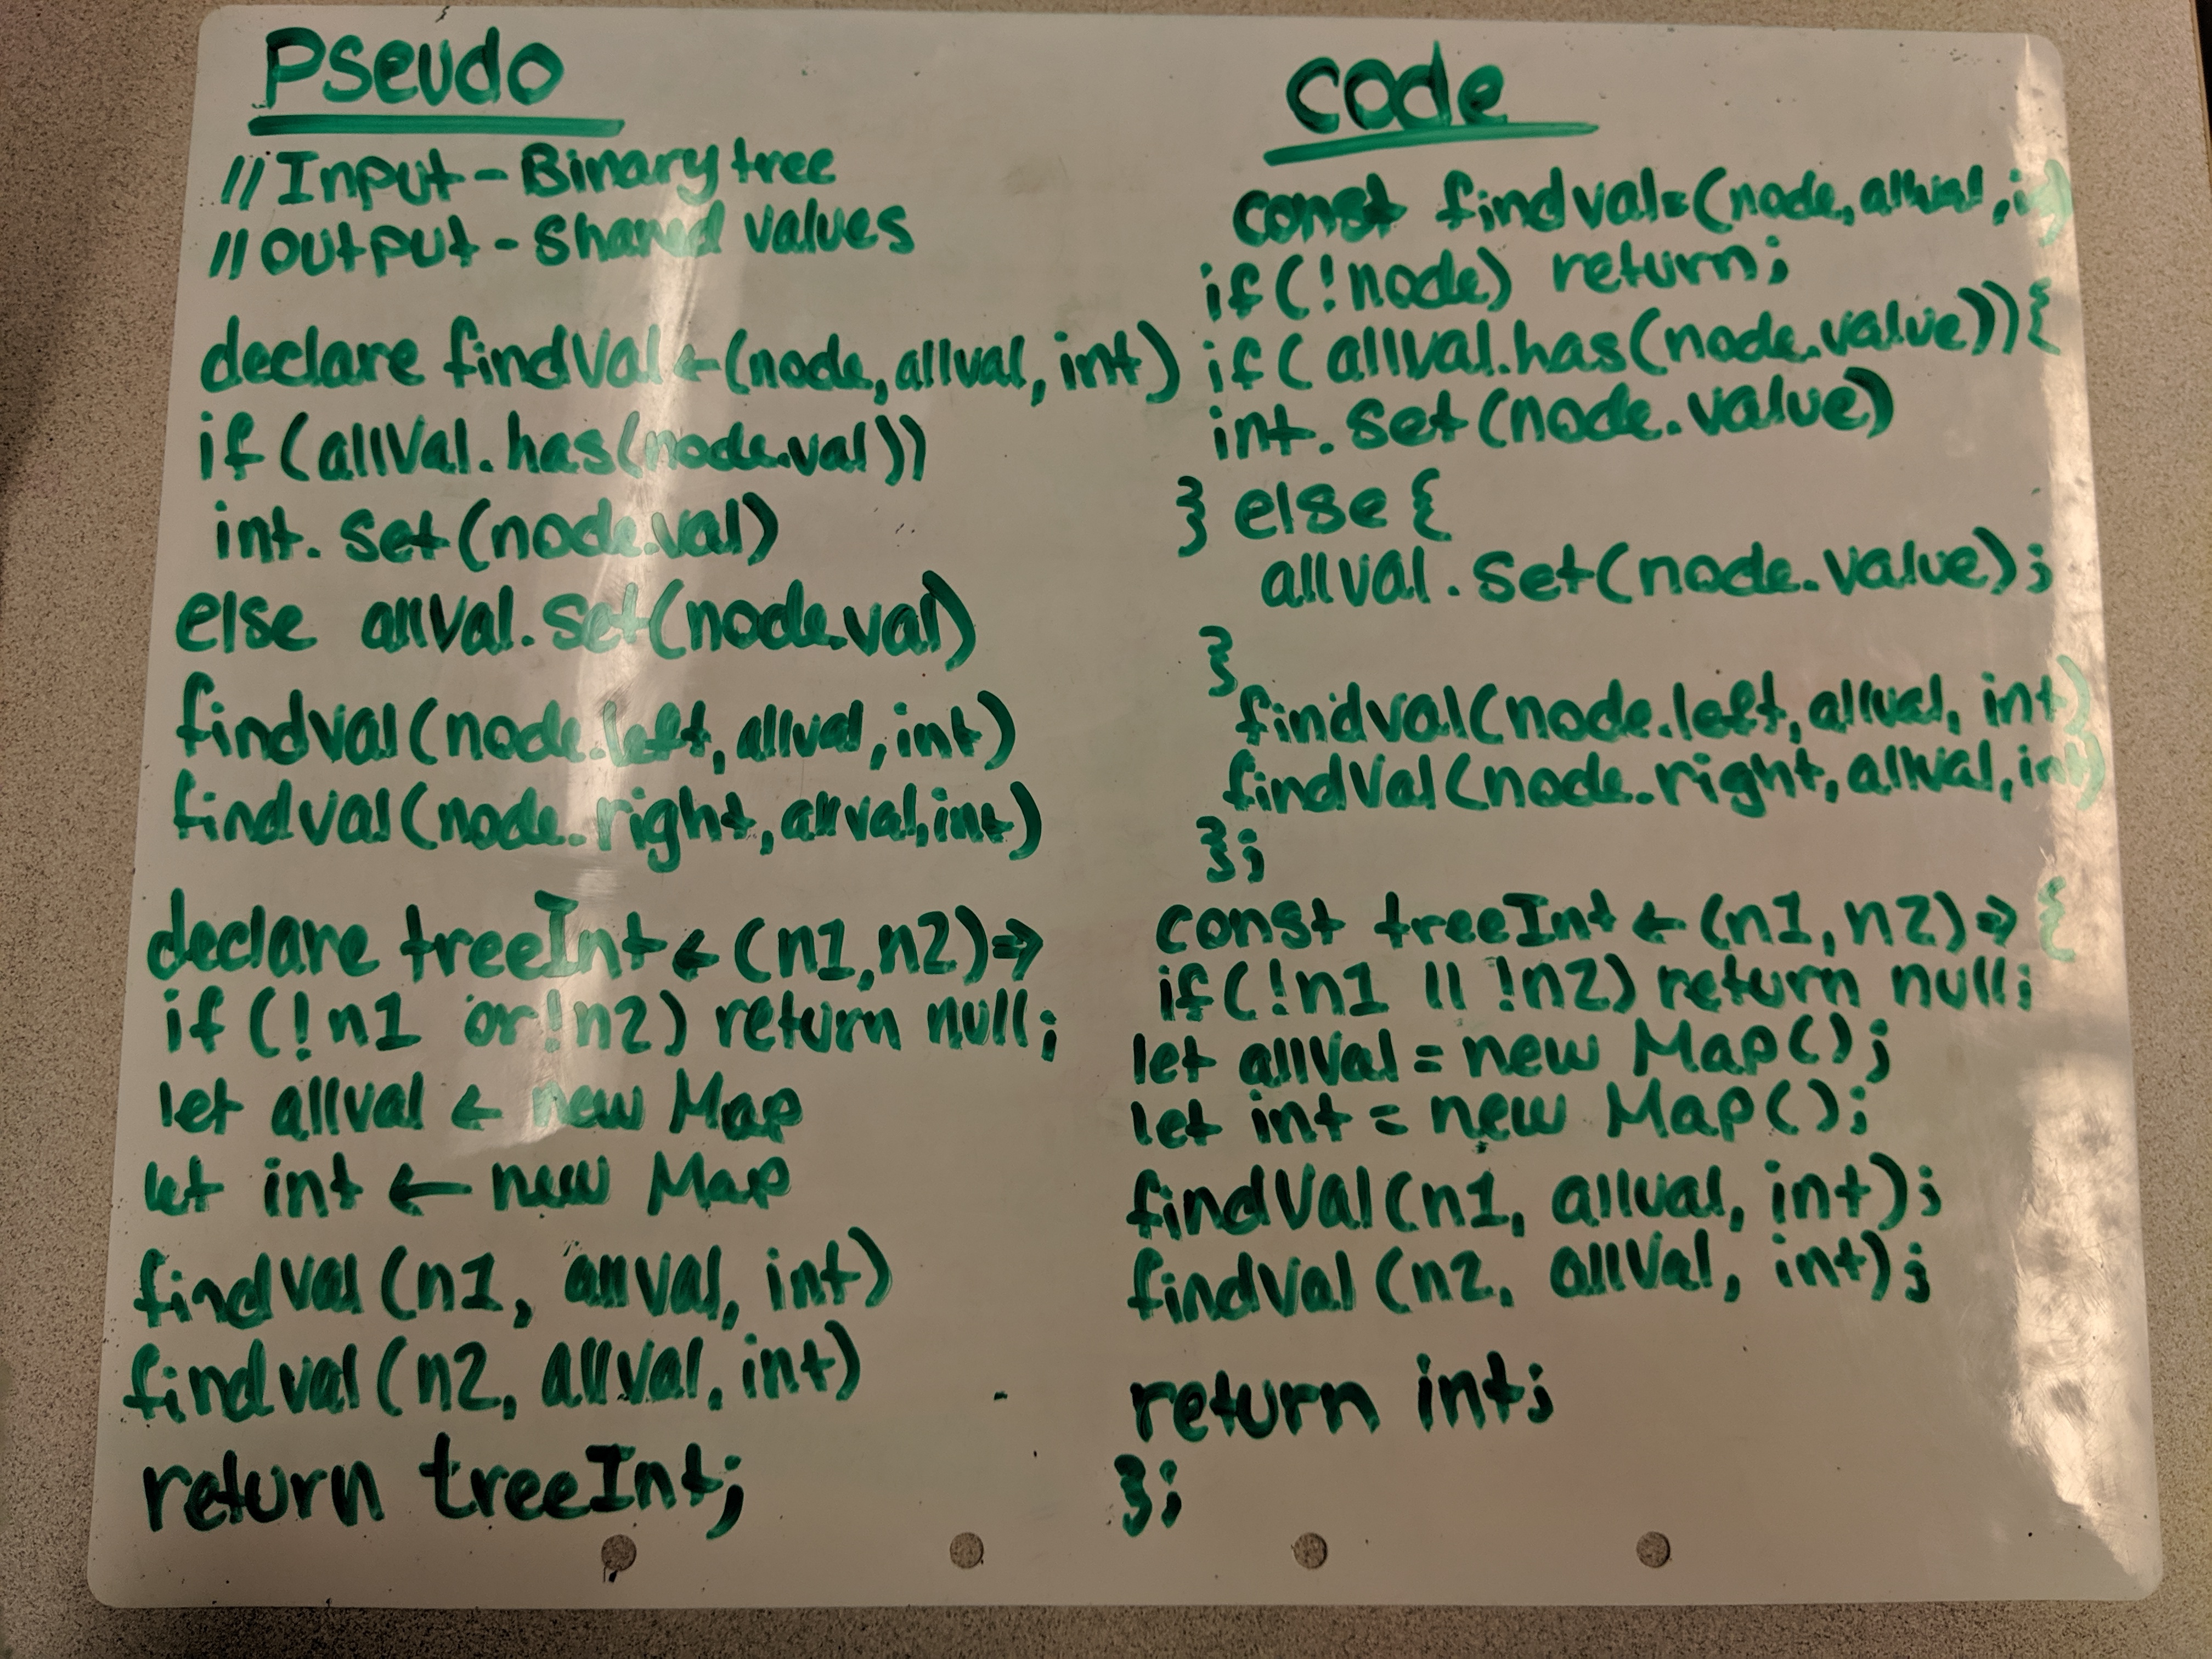 Pseudo
// Input - Binary tree
// Output - Shared values
declare findVal ← (node, allval, int)
if (allVal.has(node.val))
int. set (node.val)
else allVal. set (node.val)
findval (node.left, allval, int)
findval (node.right, allval, int)
declare treeInt ← (n1, n2) =>
if (!n1 or !n2) return null;
let allval ← new Map
let int ← new Map
findVal (n1, allval, int)
findval (n2, allval, int)
return treeInt;
code
const findval = (node, allval,
if (!node) return;
if ( allVal.has (node.value)) {
int. set (node.value)
} else {
allval. set (node.value);
}
findval (node.left, allval, int)
findVal (node.right, allval, int)
};
const treeInt ← (n1, n2) => {
if (!n1 || !n2) return null;
let allVal = new Map();
let int = new Map();
findVal (n1, allval, int);
findVal (n2, allVal, int);
return int;
};